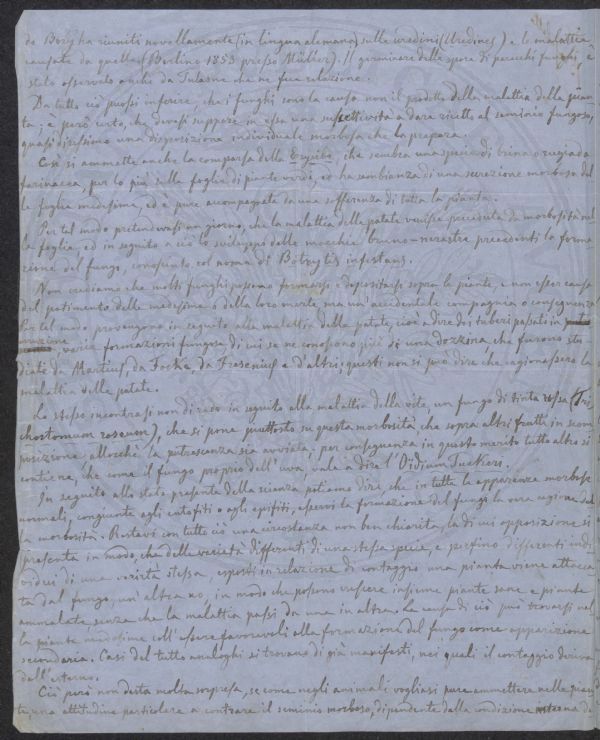 de Bary ha riuniti novellamente (in lingua alemana) sulle uredini (Uredines) e le malattie
causate da quelle (Berlino 1853 presso Müller). Il germinare delle spore di parecchi funghi è
stato osservato anche da Tulasne che ne fece relazione.
Da tutto ciò puossi inferire, che i funghi sono la causa non il prodotto della malattia della pian-
ta; è però certo, che devesi supporre in essa una suscettività a dare ricetto al seminio fungoso,
quasi diressimo una disposizione individuale morbosa che la prepara.
Così si ammette anche la comparsa della Erysibe, che sembra una specie di brina o rugiada
farinacea, per lo più sulle foglie di piante verdi, ed ha sembianza di una secrezione morbosa del-
le foglie medesime, ed è pure accompagnata da una sofferenza di tutta la pianta.
Per tal modo pretendevasi un giorno, che la malattia delle patate venisse preceduta da morbosità nel-
la foglia, ed in seguito a ciò lo sviluppo delle macchie bruno-nerastre precedenti la forma-
zione del fungo, conosciuto col nome di Botrytis infestans.
Non crediamo che molti funghi possono formarsi e depositarsi sopra le piante, e non esser causa
del patimento delle medesime o della loro morte ma un'accidentale compagnia o conseguenza
Per tal modo provengono in seguito alla malattia delle patate, cioè a dire dei tuberi passati in
varie formazioni fungose di cui se ne conoscono più di una dozzina, che furono stu-
diate da Martius, da Focke, da Fresenius e d'altri; questi non si può dire che cagionassero la
malattia delle patate.
Lo stesso incontrasi non di raro in seguito alla malattia della vite, un fungo di tinta rossa (Tri-
chostomum roseum), che si pone piuttosto su questa morbosità che sopra altri frutti in scom-
posizione allorchè la putrescenza sia avviata; per conseguenza in questo merito tutto altro si
contiene, che come il fungo proprio dell'uva, vale a dire l'Oidium Tuckeri.
In seguito allo stato presente della scienza potiamo dire, che in tutte le apparenze morbose
normali, congiunte agli entofiti o agli epifiti, esservi la formazione del fungo la vera cagione del-
la morbosità. Restavi con tutto ciò una circostanza non ben chiarita, la di cui opposizione si
presenta in modo, che delle varietà differenti di una stessa specie, e persino differenti indi-
vidui di una varietà stessa, esposti in relazione di contaggio una pianta viene attacca-
ta dal fungo, un'altra no, in modo che possono vivere insieme piante sane e piante
ammalate senza che la malattia passi da una in altra. La causa di ciò può trovarsi nel-
la piante medesime coll'essere favorevoli alla formazione del fungo come apparizione
secondaria. Casi del tutto analoghi si trovano di già manifesti, nei quali il contaggio deriva
dall'esterno.
Ciò però non desta molta sorpresa, se come negli animali vogliasi pure ammettere nelle pian-
te, una attitudine particolare a contrarre il seminio morboso, dipendente dalla condizione interna da